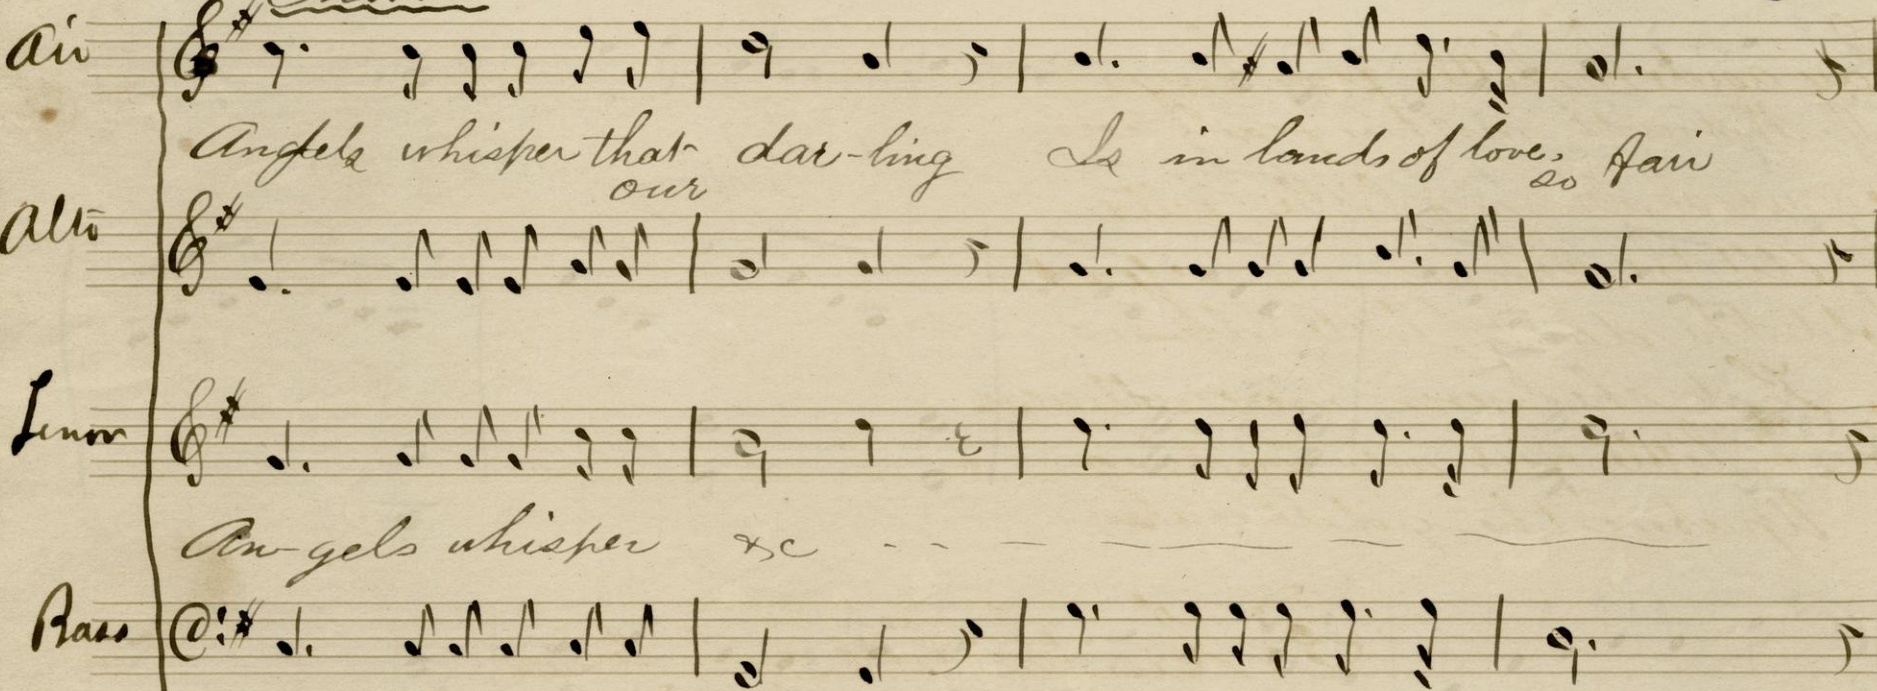 Air
Angels whisper that dar-ling Is in lands of love, fair
our so
Alto
Tenor
An-gels whisper &c
Bass